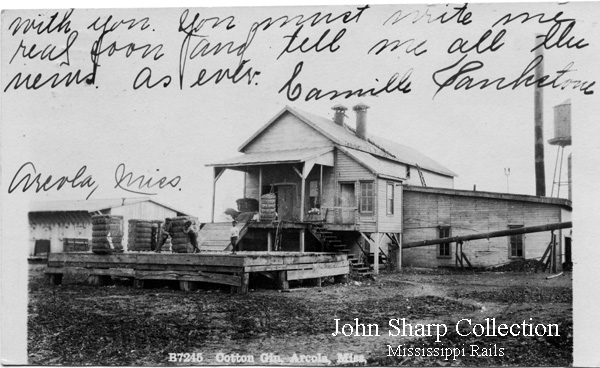 with you. You must write me
real soon and tell me all the
news. as ever. Camille Tankstone
Arcola, Miss.
John Sharp Collection
Mississippi Rails
B7245 Cotton Gin, Arcola, Miss.